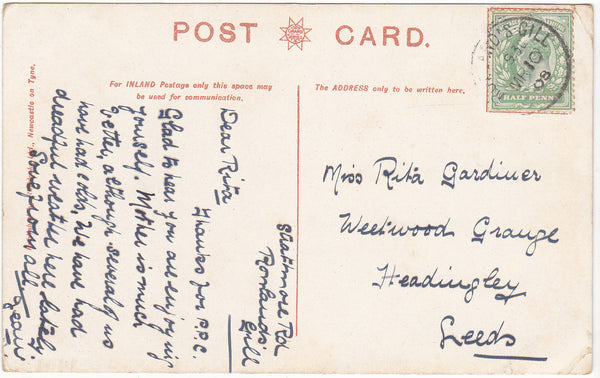 POST CARD.
For INLAND Postage only this space may
be used for communication.
The ADDRESS only to be written here.
GILL
10
08
HALF PENNY
Newcastle on Tyne.
Strathmore Rd
Rowlands
Gill
Dear Rita
Thanks for P.P.C.
Glad to hear you are enjoying
yourself. Mother is much
better, although several of us
have had colds. We have had
dreadful weather here lately.
Love from all
Miss Rita Gardiner
Weetwood Grange
Headingley
Leeds